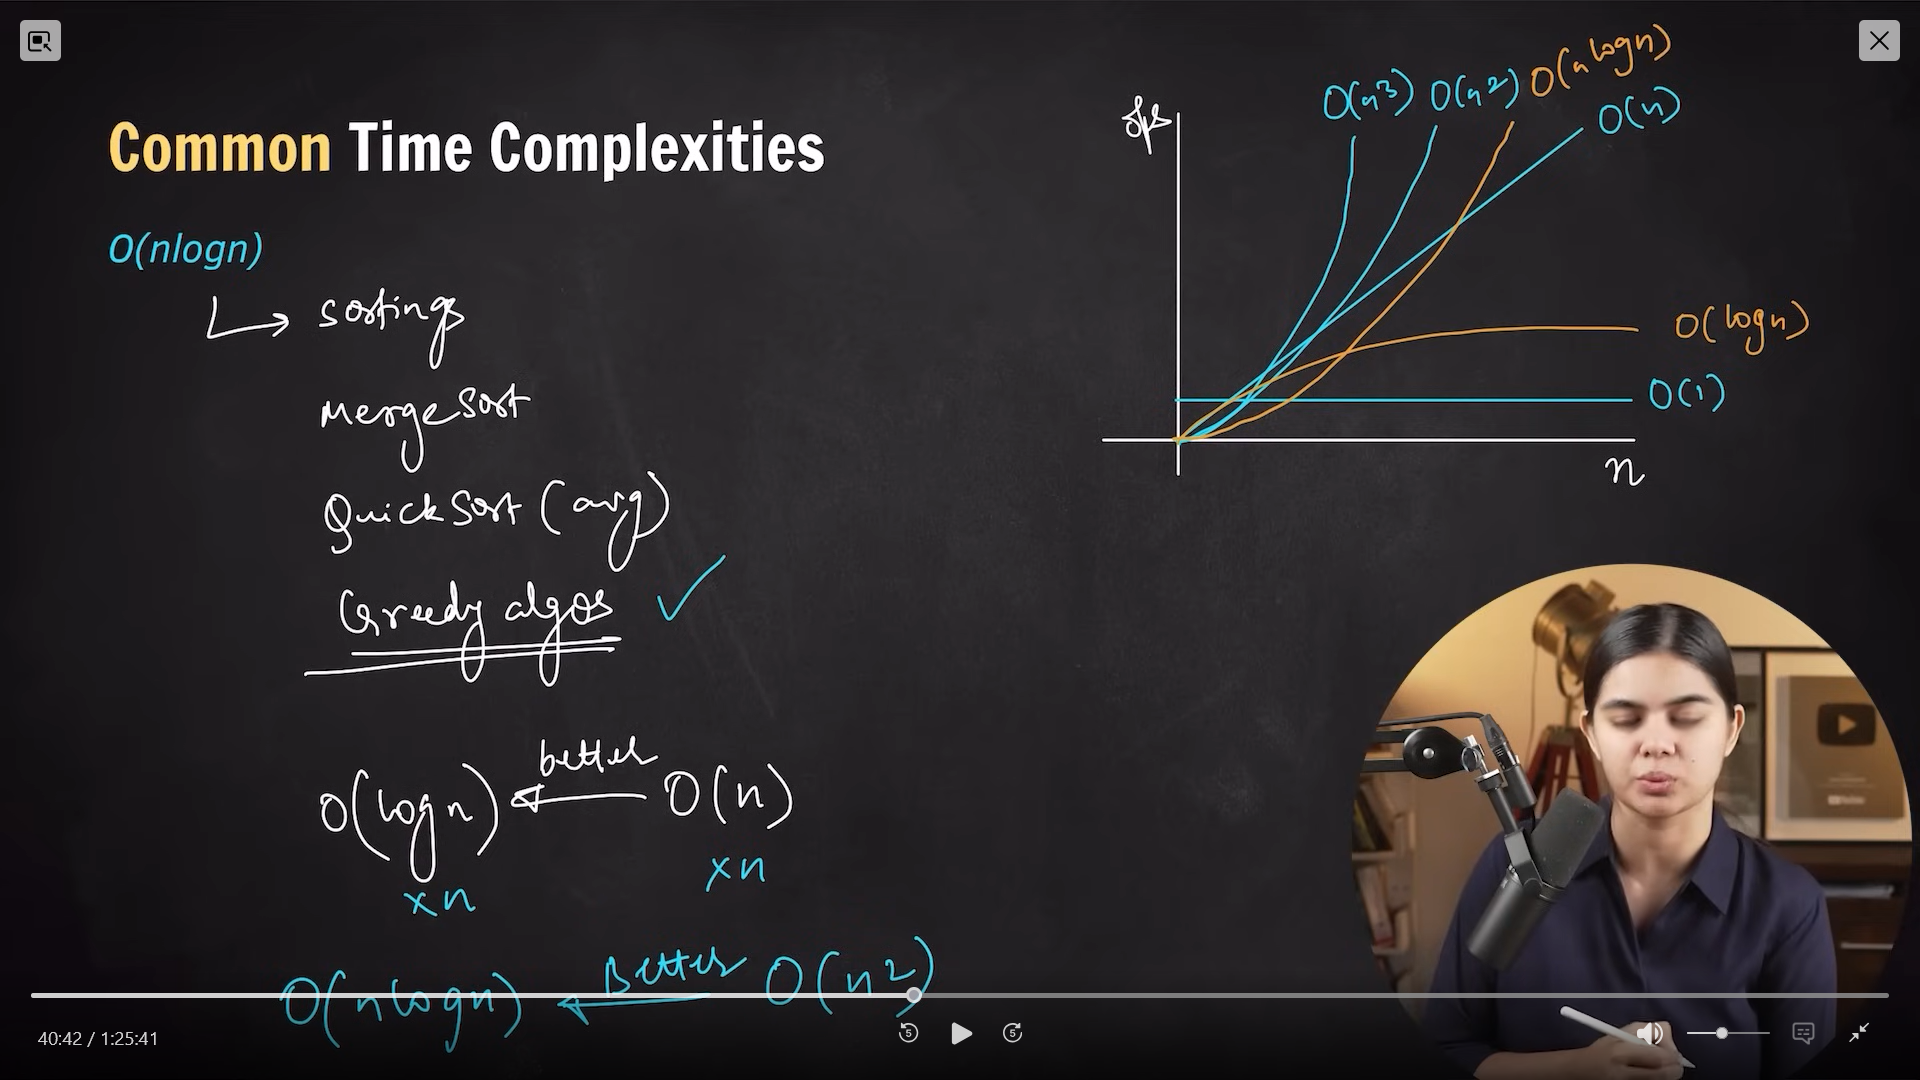 Common Time Complexities
O(nlogn)
sortings
MergeSort
QuickSort (avg)
Greedy algos
better
O(logn) O(n)
xn xn
Better
O(nlogn) O(n2)
ops
O(n3) O(n2) O(nlogn)
O(n)
O(logn)
O(1)
n
40:42 / 1:25:41
5 5